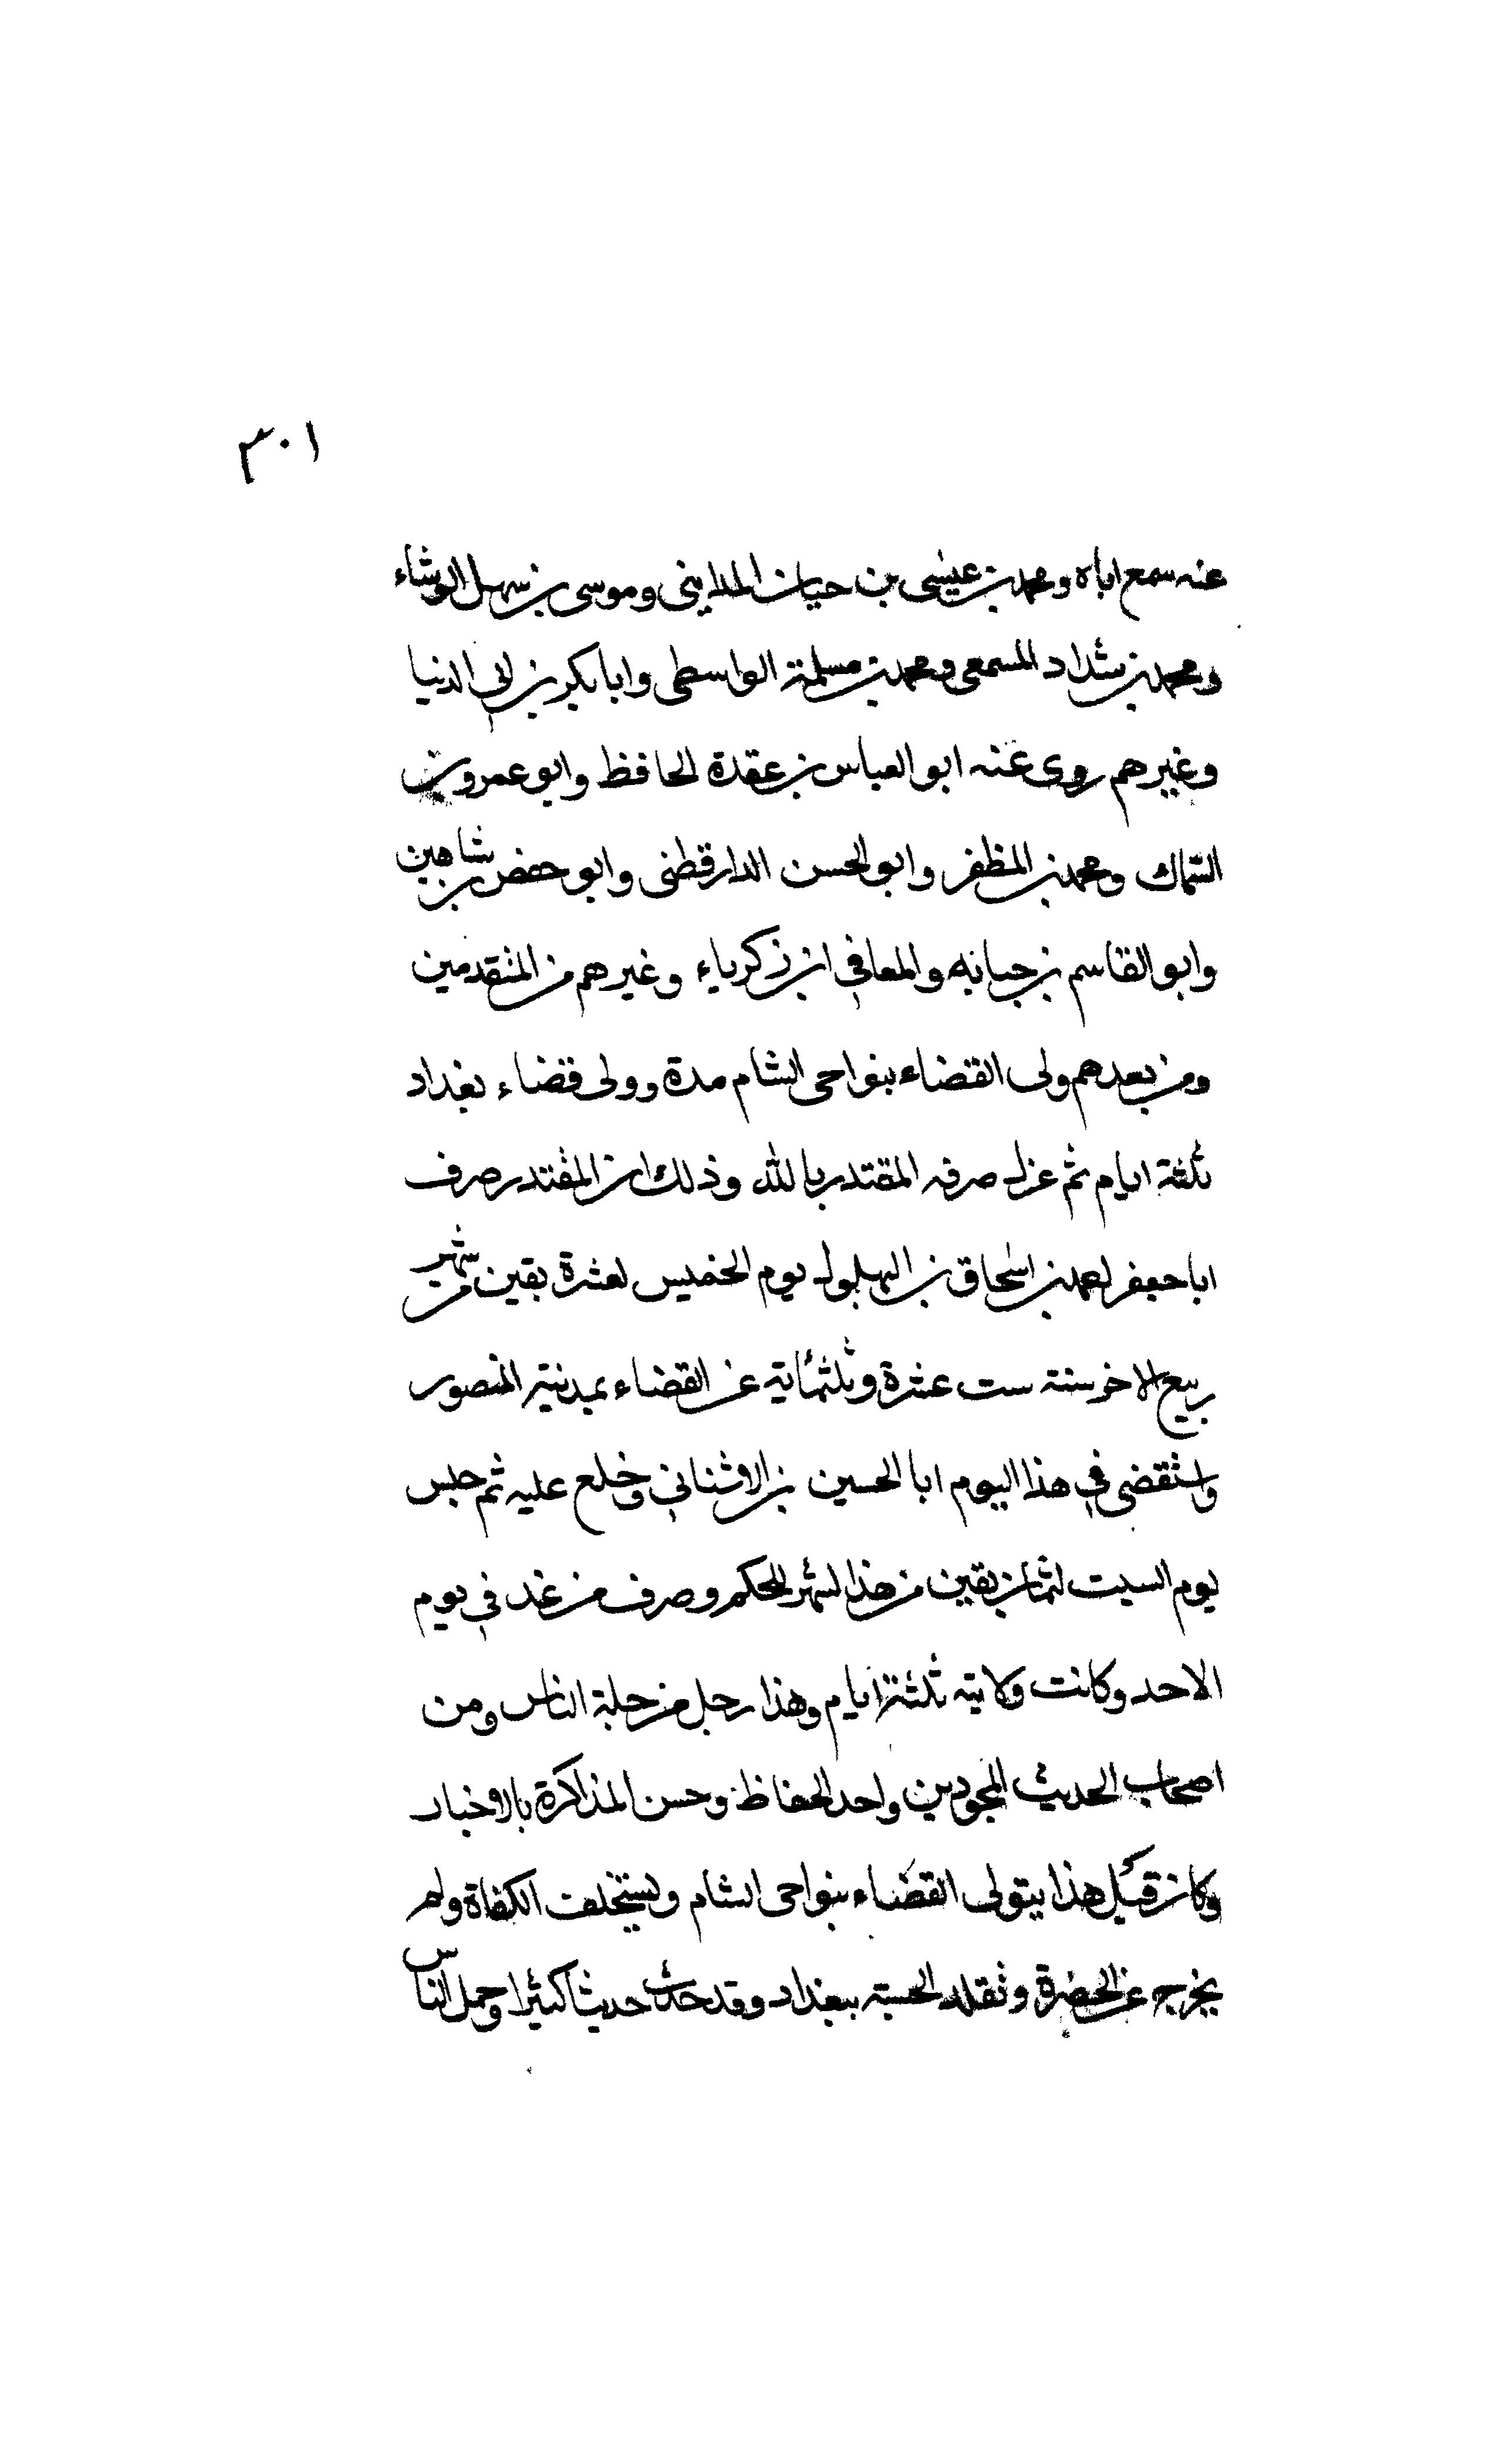 ٣٠١
عنه سمع اباه ومحمد بن عيسى بن حيان المدايني وموسى بن سهل الوشاء
ومحمد بن شداد المسمعي ومحمد بن مسلمة الواسطي وابا بكر بن ابي الدنيا
وغيرهم روى عنه ابو العباس بن عقدة الحافظ وابو عمرو بن
السماك ومحمد بن المظفر وابو الحسن الدارقطني وابو حفص بن شاهين
وابو القاسم بن حبابه والمعافى ابن زكرياء وغيرهم من المتقدمين
ومن بعدهم ولى القضاء بنواحي الشام مدة وولى قضاء بغداد
ثلثة ايام ثم عزل صرفه المقتدر بالله وذلك ان المقتدر صرف
ابا جعفر احمد بن اسحاق بن البهلول يوم الخميس لعشرة بقين من شهر
ربيع الاخر سنة ست عشرة وثلثمائة عن القضاء بمدينة المنصور
واستقضى في هذا اليوم ابا الحسين بن الاشناني وخلع عليه ثم جلس
يوم السبت لثمان بقين من هذا الشهر للحكم وصرف من غد في يوم
الاحد وكانت ولايته ثلثة ايام وهذا رجل من جلة الناس ومن
اصحاب الحديث المجودين واحد الحفاظ وحسن المذاكرة بالاخبار
وكان قبل هذا يتولى القضاء بنواحي الشام ويستخلف الكفاة ولم
يخرج عن الحضرة وتقلد الحسبة ببغداد وقد حدث حديثا كثيرا وحمل الناس